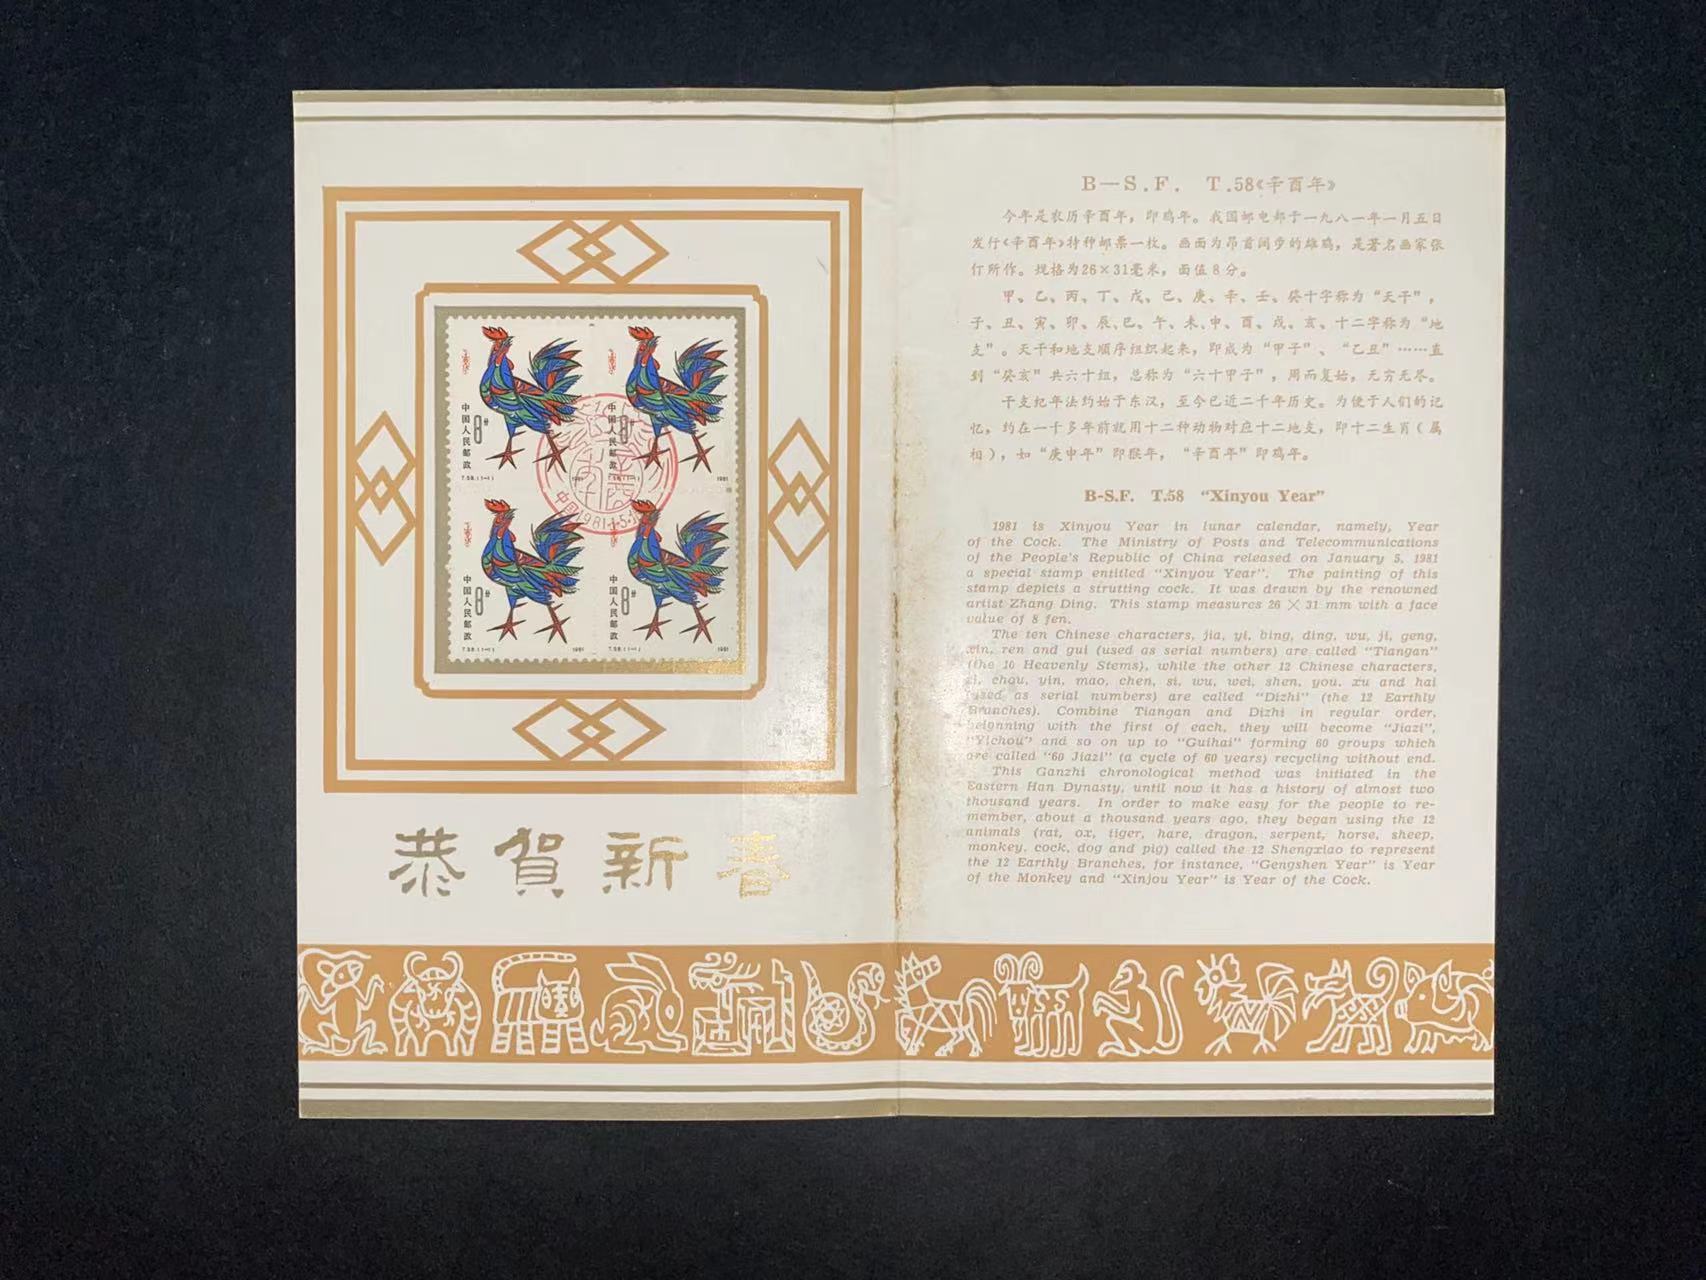 中国人民邮政
8分
T.58.(1-1)
1981
中国人民邮政
8分
T.58.(1-1)
1981
中国人民邮政
8分
T.58.(1-1)
1981
中国人民邮政
8分
T.58.(1-1)
1981
中国 1981.1.5
恭賀新春
B—S.F. T.58《辛酉年》
今年是农历辛酉年，即鸡年。我国邮电部于一九八一年一月五日
发行《辛酉年》特种邮票一枚。画面为昂首阔步的雄鸡，是著名画家张
仃所作。规格为26×31毫米，面值8分。
甲、乙、丙、丁、戊、己、庚、辛、壬、癸十字称为“天干”，
子、丑、寅、卯、辰、巳、午、未、申、酉、戌、亥、十二字称为“地
支”。天干和地支顺序组织起来，即成为“甲子”、“乙丑”……直
到“癸亥”共六十组，总称为“六十甲子”，周而复始，无穷无尽。
干支纪年法约始于东汉，至今已近二千年历史。为便于人们的记
忆，约在一千多年前就用十二种动物对应十二地支，即十二生肖（属
相），如“庚申年”即猴年，“辛酉年”即鸡年。
B-S.F. T.58 “Xinyou Year”
1981 is Xinyou Year in lunar calendar, namely, Year
of the Cock. The Ministry of Posts and Telecommunications
of the People's Republic of China released on January 5, 1981
a special stamp entitled “Xinyou Year”. The painting of this
stamp depicts a strutting cock. It was drawn by the renowned
artist Zhang Ding. This stamp measures 26 × 31 mm with a face
value of 8 fen.
The ten Chinese characters, jia, yi, bing, ding, wu, ji, geng,
xin, ren and gui (used as serial numbers) are called “Tiangan”
(the 10 Heavenly Stems), while the other 12 Chinese characters,
zi, chou, yin, mao, chen, si, wu, wei, shen, you, xu and hai
(used as serial numbers) are called “Dizhi” (the 12 Earthly
Branches). Combine Tiangan and Dizhi in regular order,
beignning with the first of each, they will become “Jiazi”,
“Yichou” and so on up to “Guihai” forming 60 groups which
are called “60 Jiazi” (a cycle of 60 years) recycling without end.
This Ganzhi chronological method was initiated in the
Eastern Han Dynasty, until now it has a history of almost two
thousand years. In order to make easy for the people to re-
member, about a thousand years ago, they began using the 12
animals (rat, ox, tiger, hare, dragon, serpent, horse, sheep,
monkey, cock, dog and pig) called the 12 Shengxiao to represent
the 12 Earthly Branches, for instance, “Gengshen Year” is Year
of the Monkey and “Xinjou Year” is Year of the Cock.